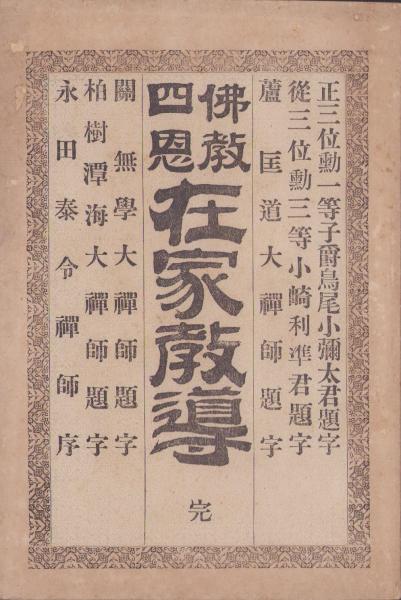 正三位勳一等子爵鳥尾小彌太君題字
從三位勳三等小崎利準君題字
蘆匡道大禪師題字
佛教四恩
在家教導
完
關無學大禪師題字
柏樹潭海大禪師題字
永田泰令禪師序